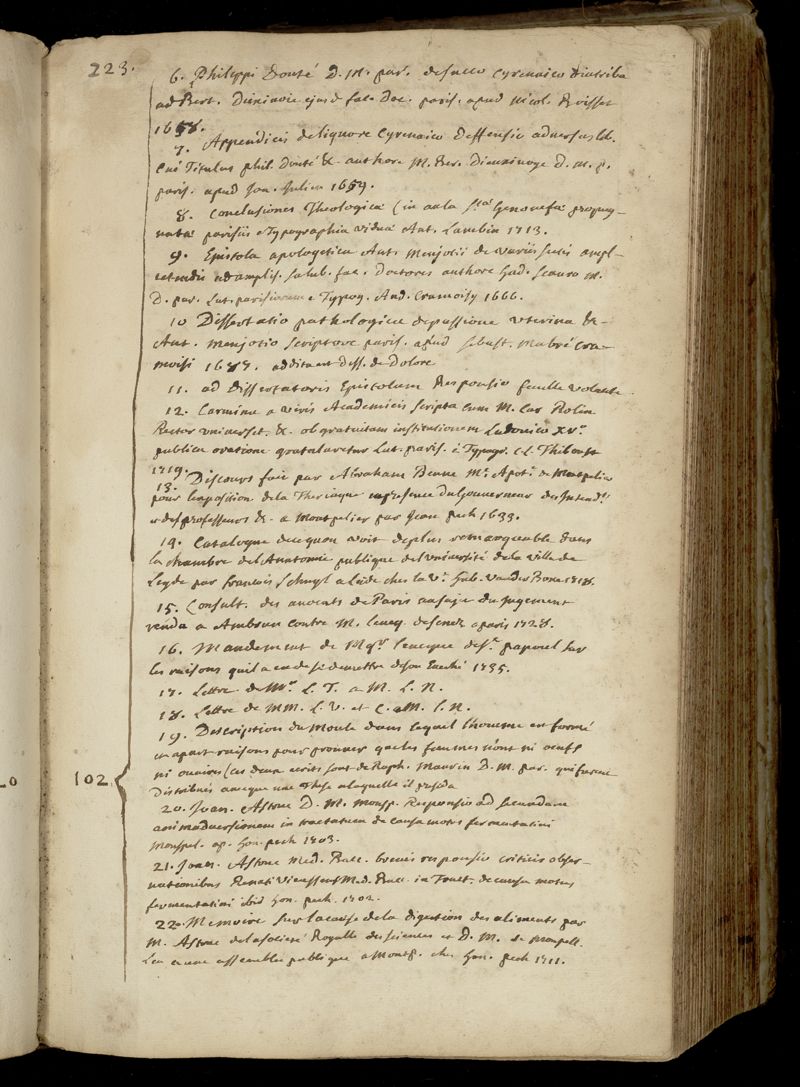 223.
6. Philippi Douté D. M. par. de succo Cyrenaico diatriba
ad Bert. Dieuxivoie ejusd. fac. doc. paris. apud Nicol. Boisset
1658.
7. Appendicis de liquore Cyrenaico deffensio adversus lib.
Cui Titulus phil. Douté &. authore M. Ber. Dieuxivoye D. m. p.
paris. apud Joa. Julien 1659.
8. Conclusiones Theologicae (in aula Stae Genovefae propug-
natae parisiis e Typographia viduae Ant. Lambin 1713.
9. Epistola apologetica Ant. Menjotii de variis sectis ampl-
ectendis ad amplis. salub. fac. Doctores authore Gad. Scauro M.
D. par. Lut. parisiorum e Typog. And. Cramoisy 1666.
10 Dissertatio pathologica de passione uterina &.
Ant. Menjotio scriptore paris. apud Sebast. Mabré Cra-
moisi 1687. addita est diss. de Dolore
11. ad dissertatoris Epistolam Responsio feuille volante
12. Carmina a viris Academicis scripta cum M. Car Rolin
Rector universit. &. ob gratuitam institutionem Ludovico XV.
publica oratione gratularetur Lut. paris. è Typogr. Cl. Thiboust
1719.
13. Discours fait par Abraham Benne Me. Apot. de Montpelier
pour l'exposition de la Theriaque en presence du Gouverneur des Intend.
et des professeurs &. a Montpelier par Jean pech 1633.
14. Catalogue de ce quon voit de plus remarquable dans
la chambre de l'Anatomie publique de l'université de la ville de
Leyde par francois Schuyl a Leide chez la Ve. Hub. vander Boxe 1718.
15. Consult. des avocats de Paris au sujet du Jugement
rendu a Ambrun contre M. leveq. de Senez a paris 1728.
16. Mandement de Mgr. leveque de St. papoul sur
les raisons quil a eu de se demettre de son Eveché 1735.
17. Lettre de Mr. L. T. a M. L. N.
18. Lettre de MM. L. V. et C. a M. L. N.
19. Description du Moule dans lequel l'homme est formé
et apart raisons pour prouver que les femmes n'ont ni oeufs
ni ovaires (ces deux ecrits sont de Raph. Maurin D. M. par. qui furent
Distribués avec une These a laquelle il presida
102
20. Joan. Astruc D. M. Monsp. Responsio ad secundam
animadversionem in tractatum de causa motus fermentativi
Monspel. ap. Hon. pech 1703.
21. Joan. Astruc Med. Bacc. brevis responsio criticis obser-
vationibus Renati Vieussens Med. Bacc. in Tract. de causa motus
fermentativi ibid Hon. pech. 1702.
22. Memoire sur la cause de la digestion des aliments par
M. Astruc de la société Royalle des sciences et D. M. de Monpell.
Leu a une assemblée publique a Montp. chez Hon. pech 1711.